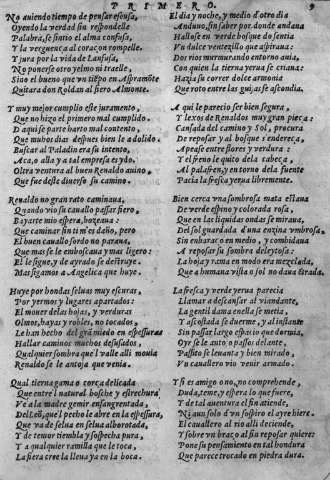 PRIMERO. 9
No auiendo tiempo de pensar escusa,
Oyendo la verdad sin respondelle
Palabra, se sintio el alma confusa,
Y la verguença al coraçon rompelle.
Y jura por la vida de Lansusa,
No ponerse otro yelmo ni traelle,
Sino el bueno que vn tiẽpo en Aspramõte
Quitara don Roldan al fiero Almonte.
Y muy mejor cumplio este juramento,
Que no hizo el primero mal cumplido.
D aqui se parte harto mal contento,
Que muhos dias despues bien le a dolido.
Buscar al Paladin era su intento,
Aca, o alla y a tal empresa es ydo.
Otra ventura al buen Renaldo auino,
Que fue deste diuerso su camino.
Renaldo no gran rato caminaua,
Quando vio su cauallo passar fiero,
Bayarte mio espera, bozeaua:
Que caminar sin ti m'es daño, pero
El buen cauallo sordo no paraua,
Que mas se le emboscaua y mas ligero:
El le sigue, y de ayrado se destruye.
Mas sigamos a Angelica que huye.
Huye por hondas seluas muy escuras,
Por yermos y lugares apartados:
El mouer de las hojas, y verduras
Olmos, hayas y robles, no tocados,
Le han hecho del gràmiedo en espessuras
Hallar caminos muchos desusados,
Qualquier sombra que l valle alli mouia
Renaldo se le antoja que venia.
Qual tierna gama o corça delicada
Que entre l natural bosche y estrechura
Ve a la madre gemir ensangrentada,
Del Leõ, que'l pecho le abre en la espessura,
Que va de selua en selua alborotada,
Y de temor tiembla y sospecha pura,
Y a qualquier ramilla que le toca,
La fiera cree la lleua ya en la boca.
El dia y noche, y medio d'otro dia
Anduuo, sin saber por donde andana
Hallose en verde bosque do sentia
Vn dulce ventezillo que aspiraua:
Dos rios murmurando entorno auia,
Con quien la tierna yerua se criana:
Hazia su correr dolce armonia
Que roto entre las guijas se ascondia.
A qui le pareció ser bien segura,
Y lexos de Renaldos muy gran pieça:
Cansada del camino y Sol, procura
De reposar y al bosque s'endereça,
Apease entre flores y verdura:
Y el freno le quito dela cabeça,
Al palafren, y en torno dela fuente
Pacia la fresca yerua libremente.
Bien cerca vna sombrosa mata estaua
De verde espino y colorada rosa,
Que en las liquidas ondas se miraua,
Del sol guardada d'una enzina vmbrosa.
Sin embaraço en medio, y combidaua
A reposar su sombra deleytosa:
La hoja y rama en modo era mezclada,
Que a humana vista o sol no daua ẽtrada.
La fresca y verde yerua parecia
Llamar a descansar al viandante,
La gentil dama enella se metia,
Y ascostada se duerme, y al instante
Sin passar largo espacio que dormia,
Oyr se le auto, o passos delante.
Passito se leuanta y bien mirado,
Vn cauallero vio venir armado.
Y si es amigo o no, no comprehende,
Duda, teme, y espera lo que fuere,
Y de tal auentura el fin atiende,
Ni aun solo d'vn sospiro el ayre hiere.
El cauallero al rio alli deciende,
Y sobre vn braço al fin reposar quiere:
Pone su pensamiento en hondura
Que parece trocado en piedra dura.